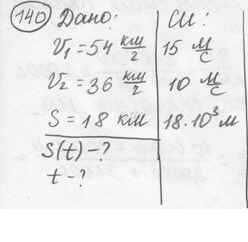 140 Дано: СИ:
V₁ = 54 км/ч 15 м/с
V₂ = 36 км/ч 10 м/с
S = 18 км 18·10³ м
S(t) - ?
t - ?